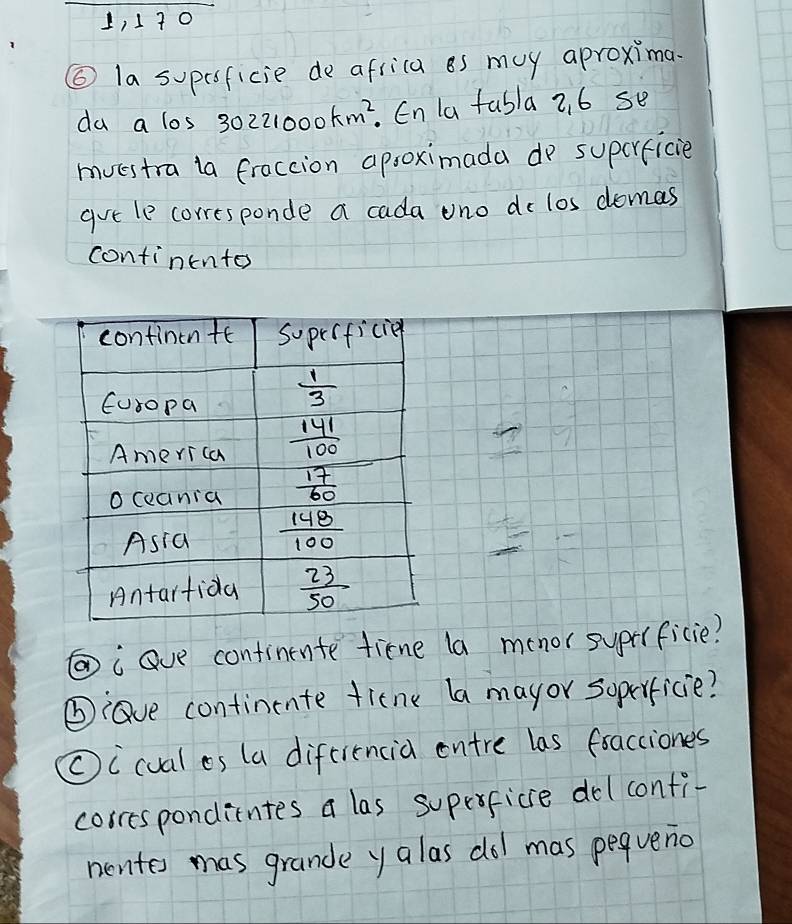 1,170
⑥ la superficie de africa es muy aproxima-
da a los 30221000km². En la tabla 2,6 se
muestra la fraccion aproximada de superficie
que le corresponde a cada uno de los demas
continentes
continente superficie
Europa 1/3
America 141/100
oceania 17/60
Asia 148/100
Antartida 23/50
ⓐ ¿ Que continente tiene la menor superficie?
ⓑ ¿Que continente tiene la mayor superficie?
ⓒ ¿ cual es la diferencia entre las fracciones
correspondientes a las superficie del conti-
nentes mas grande y a las del mas pequeño